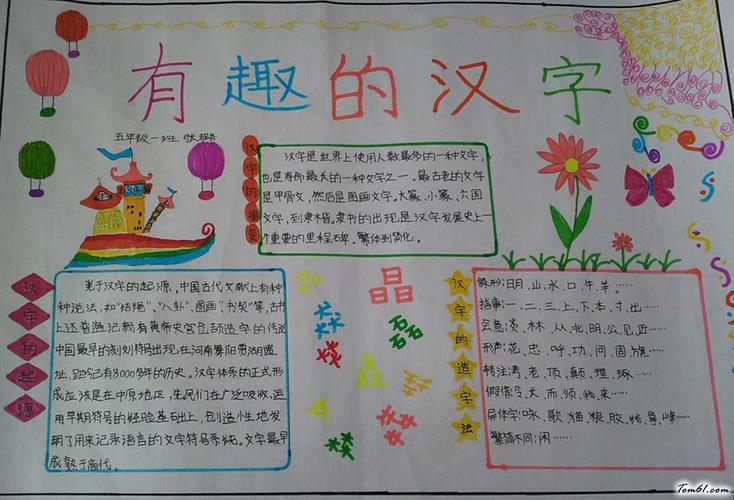 有趣的汉字
五年级一班 张珺
汉字的演变
汉字是世界上使用人数最多的一种文字,
也是寿命最长的一种文字之一。最古老的文字
是甲骨文,然后是图画文字。大篆、小篆、六国
文字,到隶楷。隶书的出现是汉字发展史上一
个重要的里程碑。繁体到简化。
汉字的起源
关于汉字的起源,中国古代文献上有种
种说法,如"结绳"、"八卦"、"图画"、"书契"等,古书
上还普遍记载有黄帝史官仓颉造字的传说
中国最早的刻划符号出现在河南舞阳贾湖遗
址,距今已有8000多年的历史。汉字体系的正式形
成应该是在中原地区,先民们在广泛吸收、运
用早期符号的经验基础上,创造性地发
明了用来记录语言的文字符号系统。文字最早
成熟于商代。
晶
品
猋
磊
汉字的造字法
象形:日月、山、水、口、牛、羊……
指事:一、二、三、上、下、本、寸、出……
会意:淡、林、从、北、明、公、见、近……
形声:花、忠、呼、功、问、固、旗……
转注:考、老、顶、颠、理、琢……
假借:令、长、而、须、我、来……
异体字:咏、歌、猫、狼、胶、线、拿、峰……
繁简不同:闲……
Tom61.com